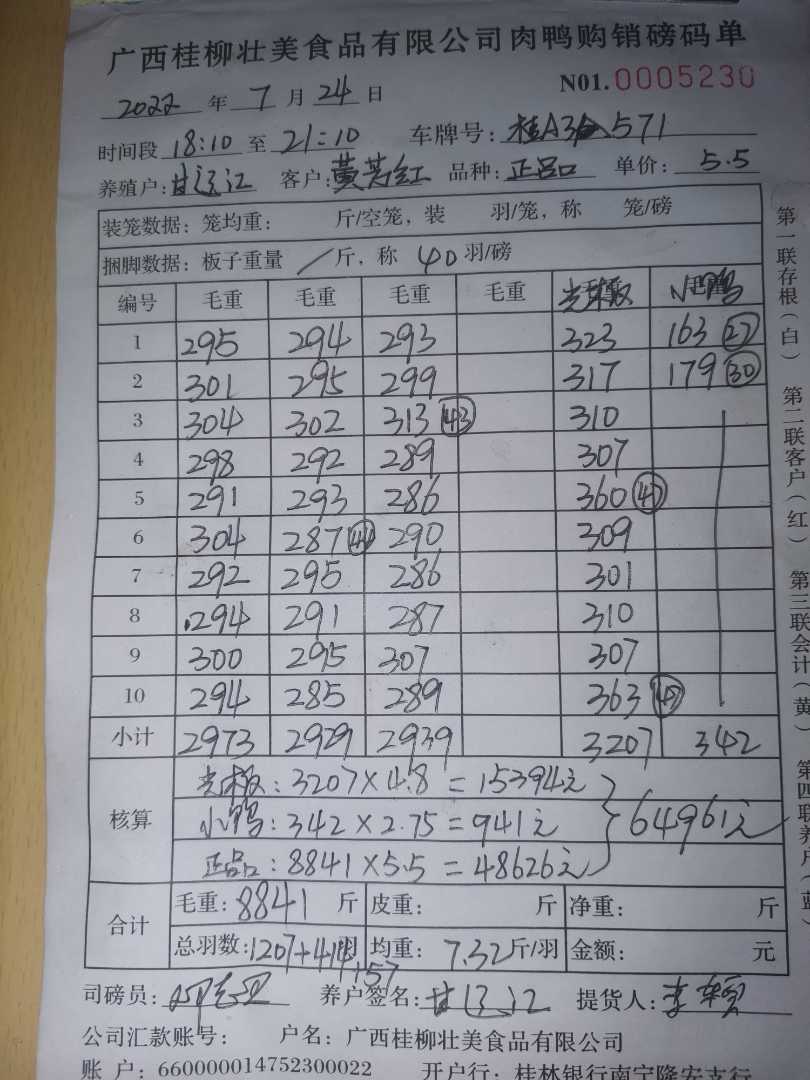 广西桂柳壮美食品有限公司肉鸭购销磅码单
2022 年 7 月 24 日 N01.0005230
时间段 18:10 至 21:10 车牌号: 桂A3 571
养殖户: 甘 江 客户: 黄 红 品种: 正品 单价: 5.5
装笼数据: 笼均重: 斤/空笼, 装 羽/笼, 称 笼/磅
捆脚数据: 板子重量 / 斤, 称 40 羽/磅
编号 毛重 毛重 毛重 毛重 光板 小鸭
1 295 294 293 323 163 (27)
2 301 295 299 317 179 (30)
3 304 302 313 (43) 310
4 298 292 289 307
5 291 293 286 360 (47)
6 304 287 290 309
7 292 295 286 301
8 294 291 287 310
9 300 295 307 307
10 294 285 289 363
小计 2973 2929 2939 3207 342
核算 光板: 3207 × 4.8 = 15394元
小鸭: 342 × 2.75 = 941元 64961元
正品: 8841 × 5.5 = 48626元
合计 毛重: 8841 斤 皮重: 斤 净重: 斤
总羽数: 1207+414+57 羽 均重: 7.32 斤/羽 金额: 元
司磅员: 养户签名: 甘 江 提货人: 李
公司汇款账号: 户名: 广西桂柳壮美食品有限公司
账 户: 660000014752300022 开户行: 桂林银行南宁隆安支行
第一联存根(白) 第二联客户(红) 第三联会计(黄) 第四联养户(蓝)